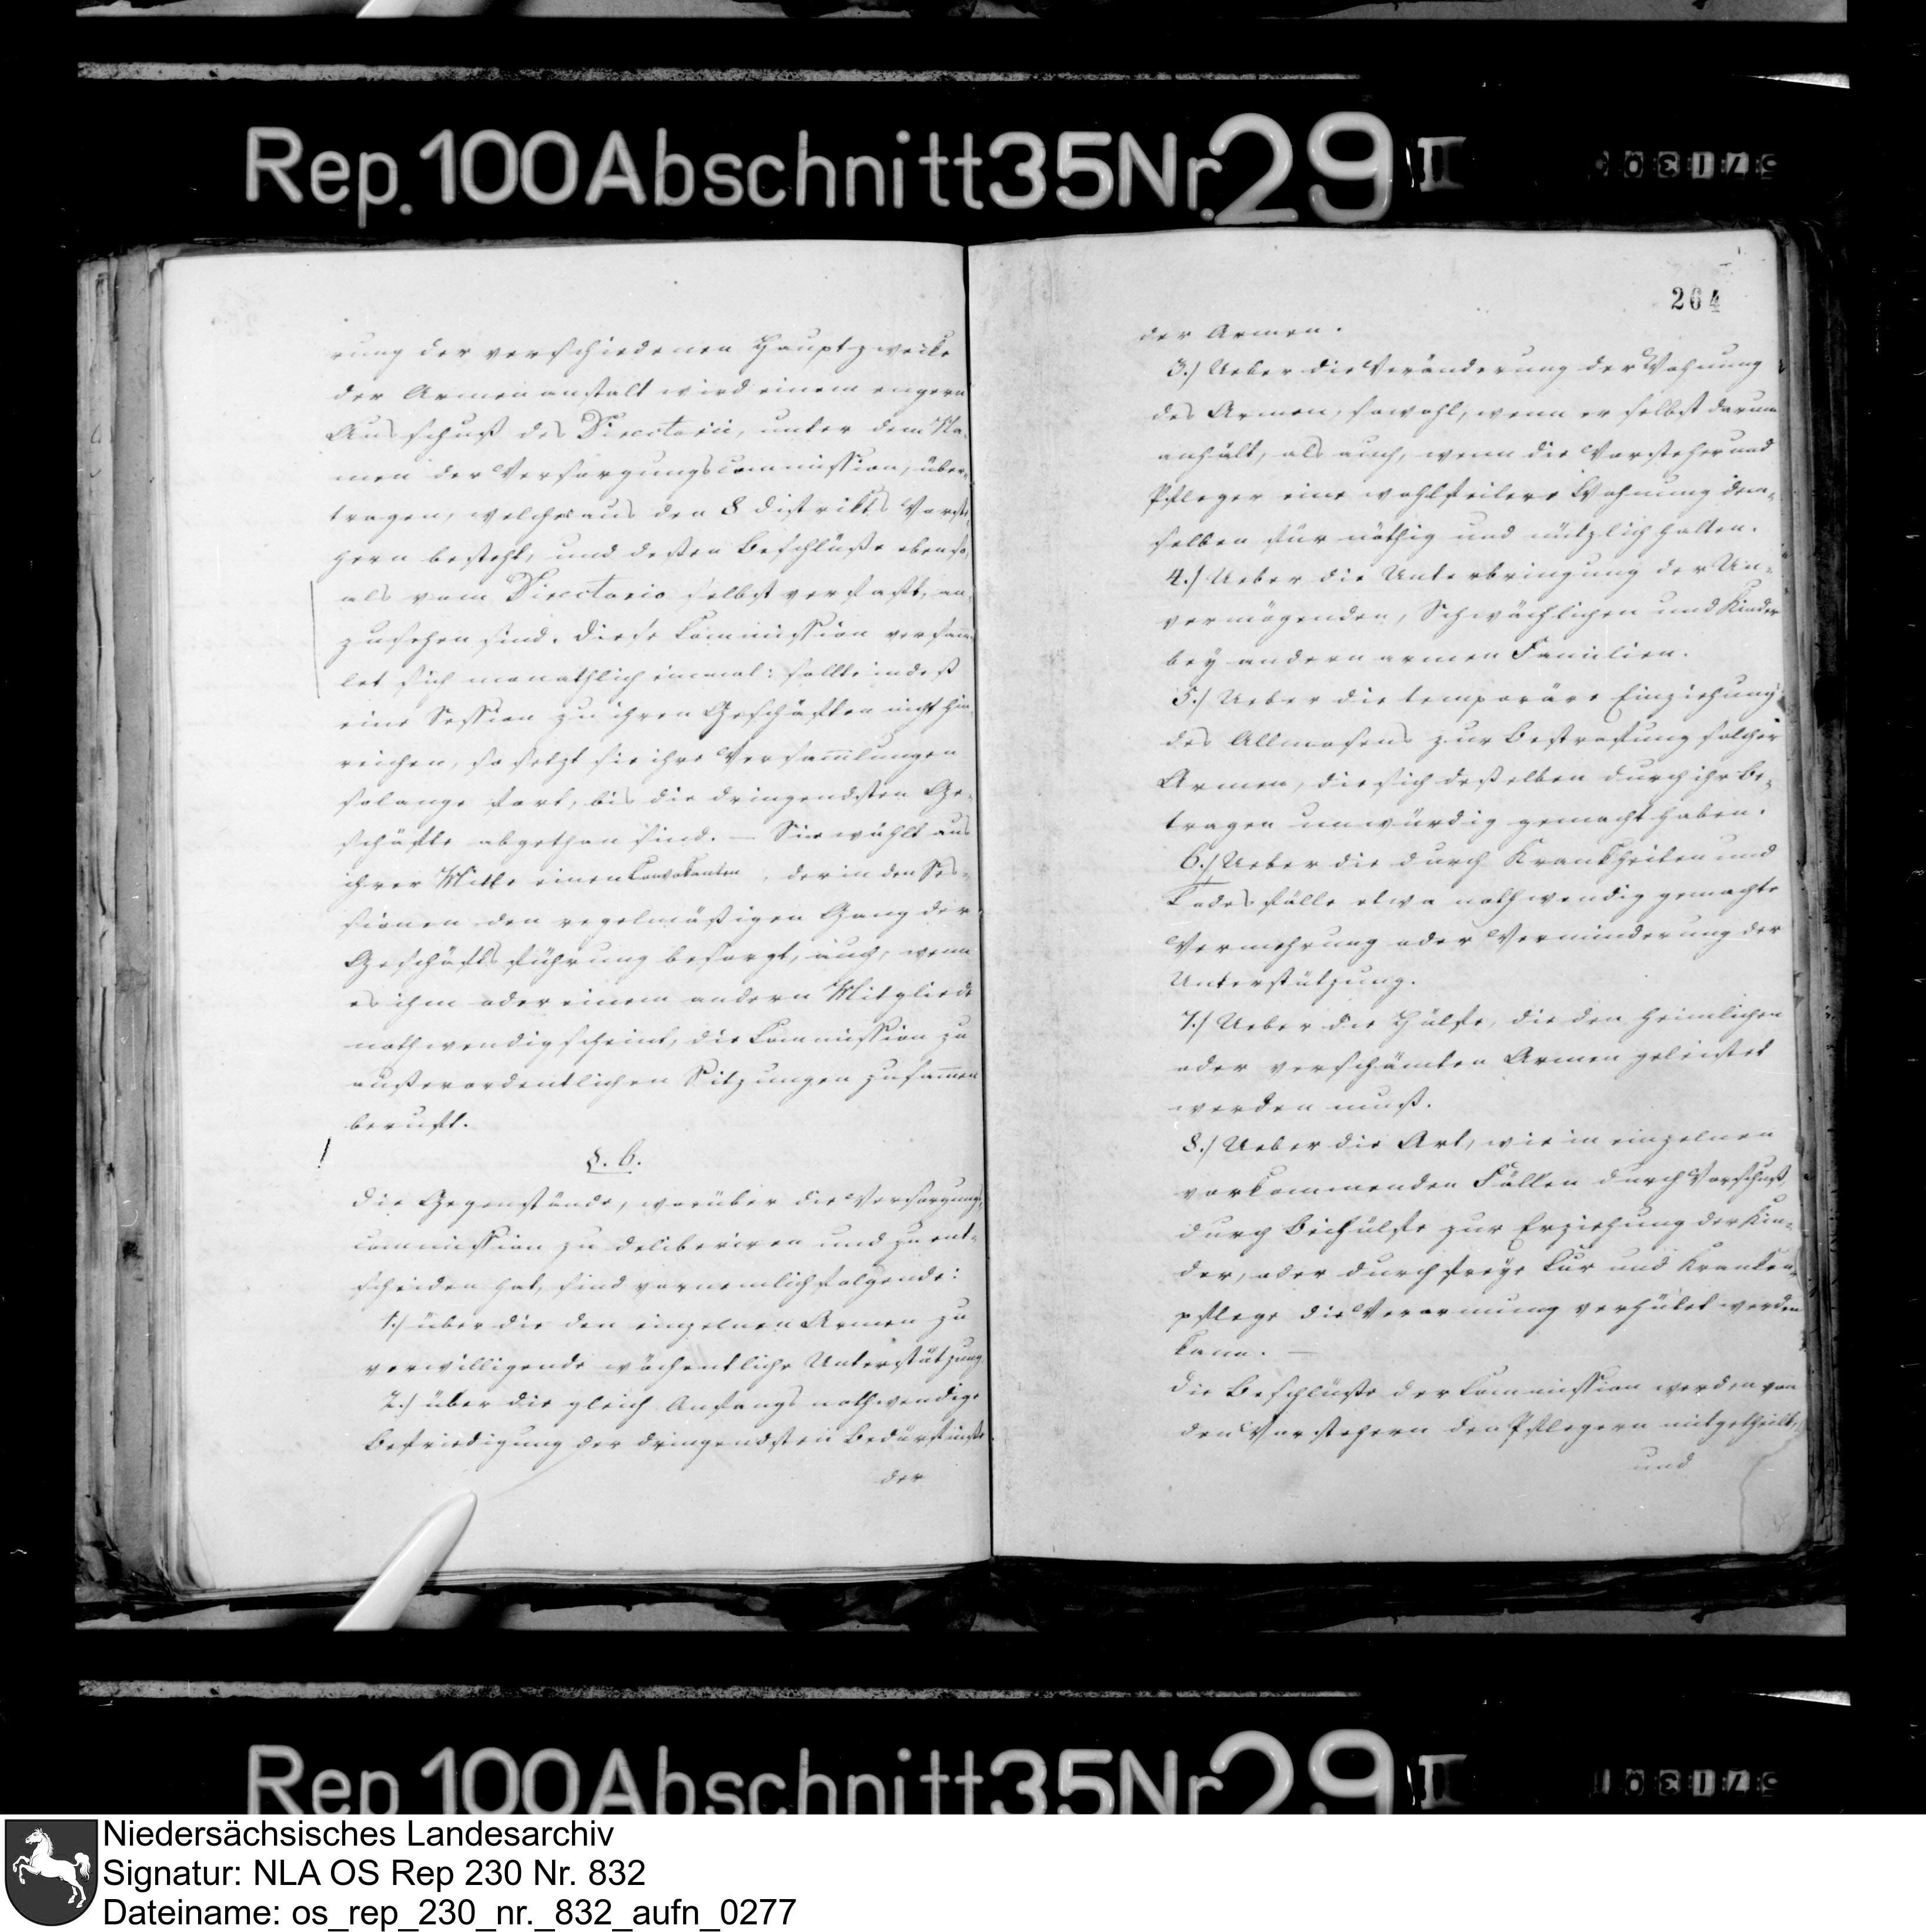 Rep. 100 Abschnitt 35 Nr. 29 I
rung der verschiedenen Hauptzwecke
der Armenanstalt wird einem engern
Ausschuß des Directorii, unter dem Na-
men der Versorgungscommission, über-
tragen, welche aus den 8 Distrikts Vorste-
hern besteht, und deßen Beschlüße eben so,
als vom Directorio selbst verfaßt, an-
zusehen sind. Diese Commission versam̅-
let sich monathlich einmal: sollte indeß
eine Session zu ihren Geschäften nicht hin-
reichen, so setzt sie ihre Versam̅lungen
solange fort, bis die dringendsten Ge-
schäfte abgethan sind. — Sie wählt aus
ihrer Mitte einen Convokanten, der in den Ses-
sionen den regelmäßigen Gang der
Geschäftsführung besorgt, auch, wenn
es ihm oder einem andern Mitgliede
nothwendig scheint, die Commission zu
außerordentlichen Sitzungen zusam̅en
beruft.
§. 6.
Die Gegenstände, worüber die Versorgungs-
commission zu deliberiren und zu ent-
scheiden hat, sind vornemlich folgende:
1.) über die den einzelnen Armen zu
verwilligende wöchentliche Unterstützung.
2.) über die gleich Anfangs nothwendige
Befriedigung der dringendsten Bedürfniße
der
264
der Armen.
3.) Ueber die Veränderung der Wohnung
des Armen, sowohl, wenn er selbst darum
anhält, als auch, wenn die Vorsteher und
Pfleger eine wohlfeilere Wohnung dem-
selben für nöthig und nützlich halten.
4.) Ueber die Unterbringung der Un-
vermögenden, Schwächlichen und Kinder
bey andern armen Familien.
5.) Ueber die temporäre Einziehung
des Allmosens zur Bestrafung solcher
Armen, die sich deßelben durch ihr Be-
tragen unwürdig gemacht haben.
6.) Ueber die durch Krankheiten und
Todesfälle etwa nothwendig gemachte
Vermehrung oder Verminderung der
Unterstützung.
7.) Ueber die Hülfe, die den heimlichen
oder verschämten Armen geleistet
werden muß.
8.) Ueber die Art, wie in einzelnen
vorkommenden Fällen durch Vorschuß,
durch Beihülfe zur Erziehung der Kin-
der, oder durch freye Cur und Kranken-
pflege die Verarmung verhütet werden
kann. —
Die Beschlüße der Commission werden von
den Vorstehern den Pflegern mitgetheilt,
und
Rep 100 Abschnitt 35 Nr 29 I
Niedersächsisches Landesarchiv
Signatur: NLA OS Rep 230 Nr. 832
Dateiname: os_rep_230_nr._832_aufn_0277